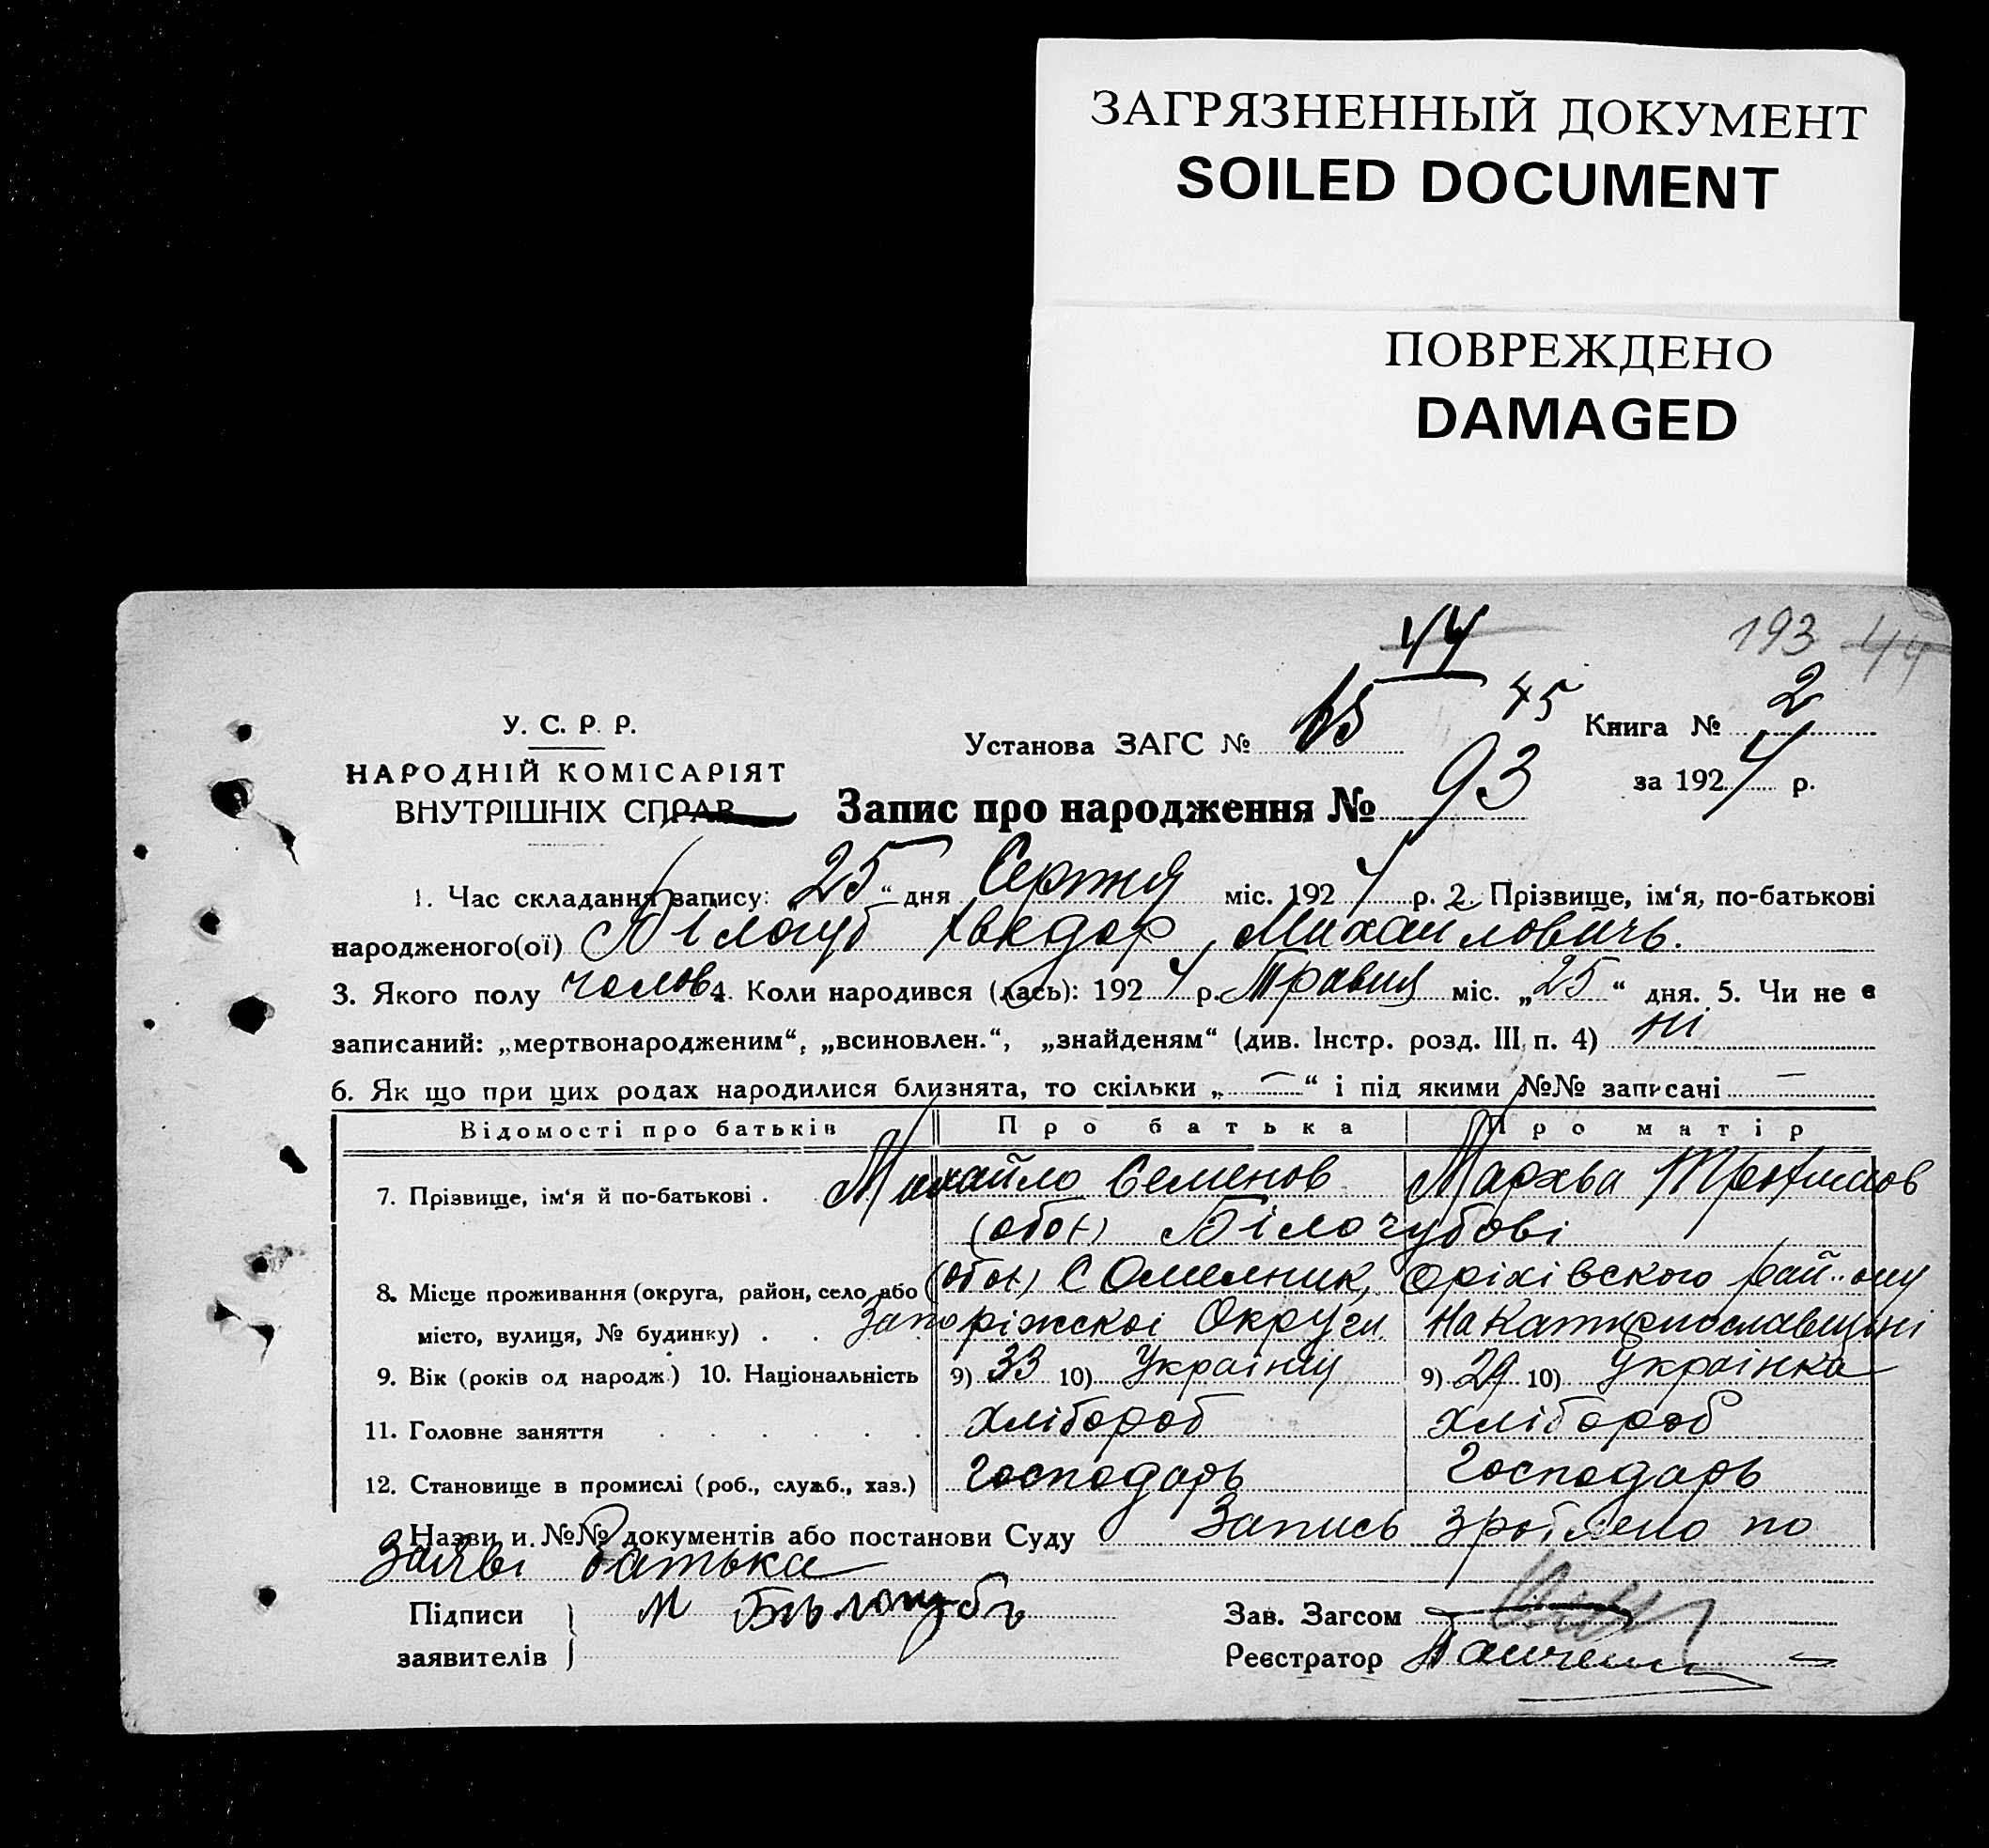 ЗАГРЯЗНЕННЫЙ ДОКУМЕНТ
SOILED DOCUMENT
ПОВРЕЖДЕНО
DAMAGED
193 44
44
У. С. Р. Р.
Установа ЗАГС № 45 Книга № 2
НАРОДНІЙ КОМІСАРІЯТ
ВНУТРІШНІХ СПРАВ
Запис про народження № 93 за 1924 р.
1. Час складання запису: 25 " дня Серпня міс. 1924 р. 2. Прізвище, ім'я, по-батькові
народженого(ої) Білочуб Хведор, Михайловичь.
3. Якого полу чолов. 4. Коли народився (лась): 1924 р. Травня міс. „25" дня. 5. Чи не є
записаний: „мертвонародженим", „всиновлен.", „знайденям" (див. Інстр. розд. III, п. 4) ні
6. Як що при цих родах народилися близнята, то скільки „—" і під якими №№ записані —
Відомості про батьків Про батька Про матір
7. Прізвище, ім'я й по-батькові . Михайло Семенов Мархва Трохимов
(обоє) Білочубові
8. Місце проживання (округа, район, село або (обоє) С Омельник, Оріхівского рай..ону
місто, вулиця, № будинку) . . Запоріжскої Округи на Катеринославщині
9. Вік (років од народж.) 10. Національність 9) 33 10) Українця 9) 29 10) Українка
11. Головне заняття . . . . . . хлібороб хлібороб
12. Становище в промислі (роб., служб., хаз.) Господарь Господарь
Назви и №№ документів або постанови Суду Запись зроблено по
заяві батька
Підписи М Бѣлочубъ Зав. Загсом
заявителів Реєстратор